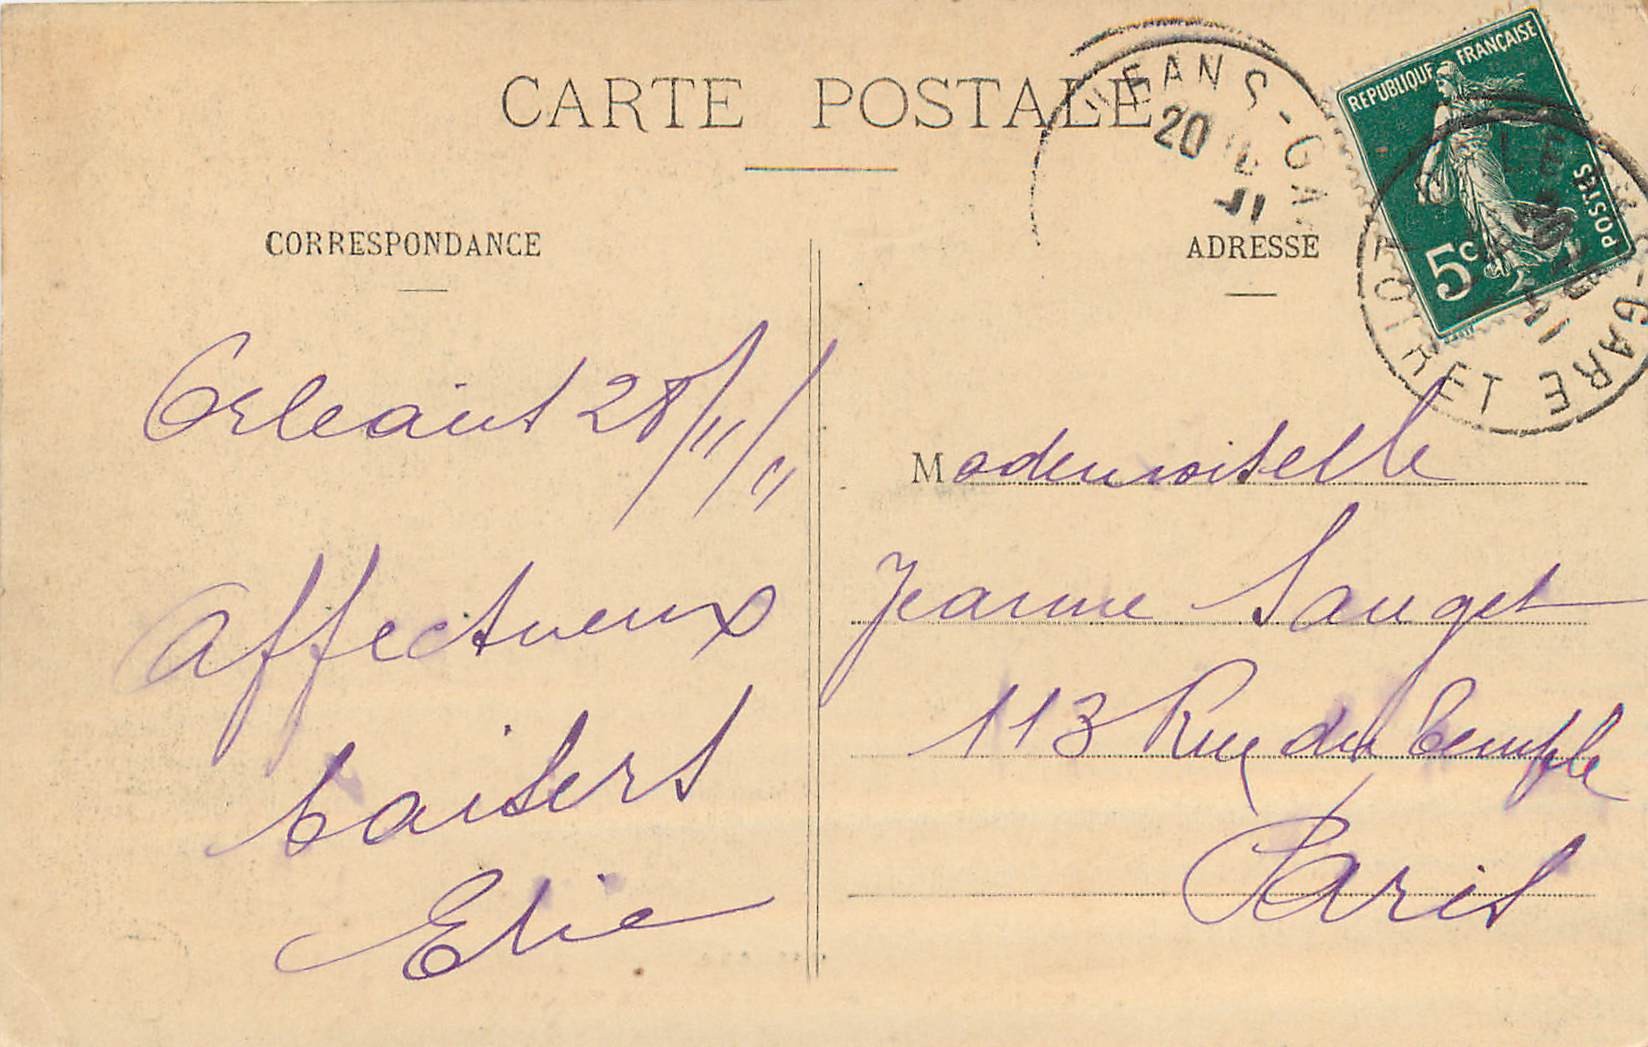 CARTE POSTALE
CORRESPONDANCE
ADRESSE
RÉPUBLIQUE FRANÇAISE
POSTES
5c
EANS-GA
20
11
GARE
LOIRET
Orléans 28/11/11
Affectueux
baisers
Elie
Mademoiselle
Jeanne Sauget
113 Rue du Temple
Paris